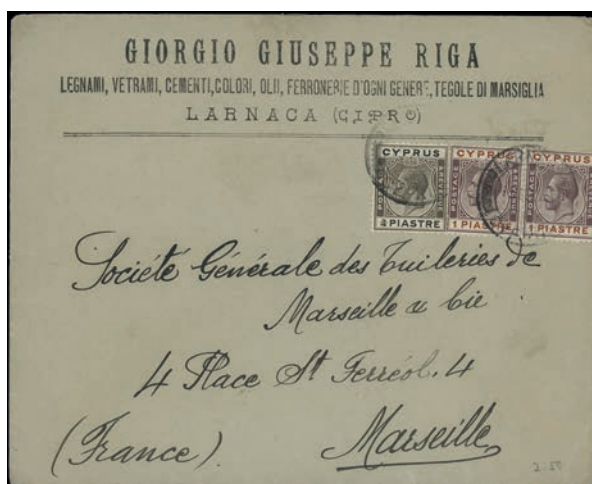 GIORGIO GIUSEPPE RIGA
LEGNAMI, VETRAMI, CEMENTI, COLORI, OLII, FERRONERIE D'OGNI GENERE, TEGOLE DI MARSIGLIA
LARNACA (CIPRO)
CYPRUS CYPRUS CYPRUS
POSTAGE REVENUE POSTAGE REVENUE POSTAGE REVENUE
PIASTRE 1 PIASTRE 1 PIASTRE
Société Générale des Tuileries de
Marseille & Cie.
4 Place St Ferréol. 4
(France). Marseille